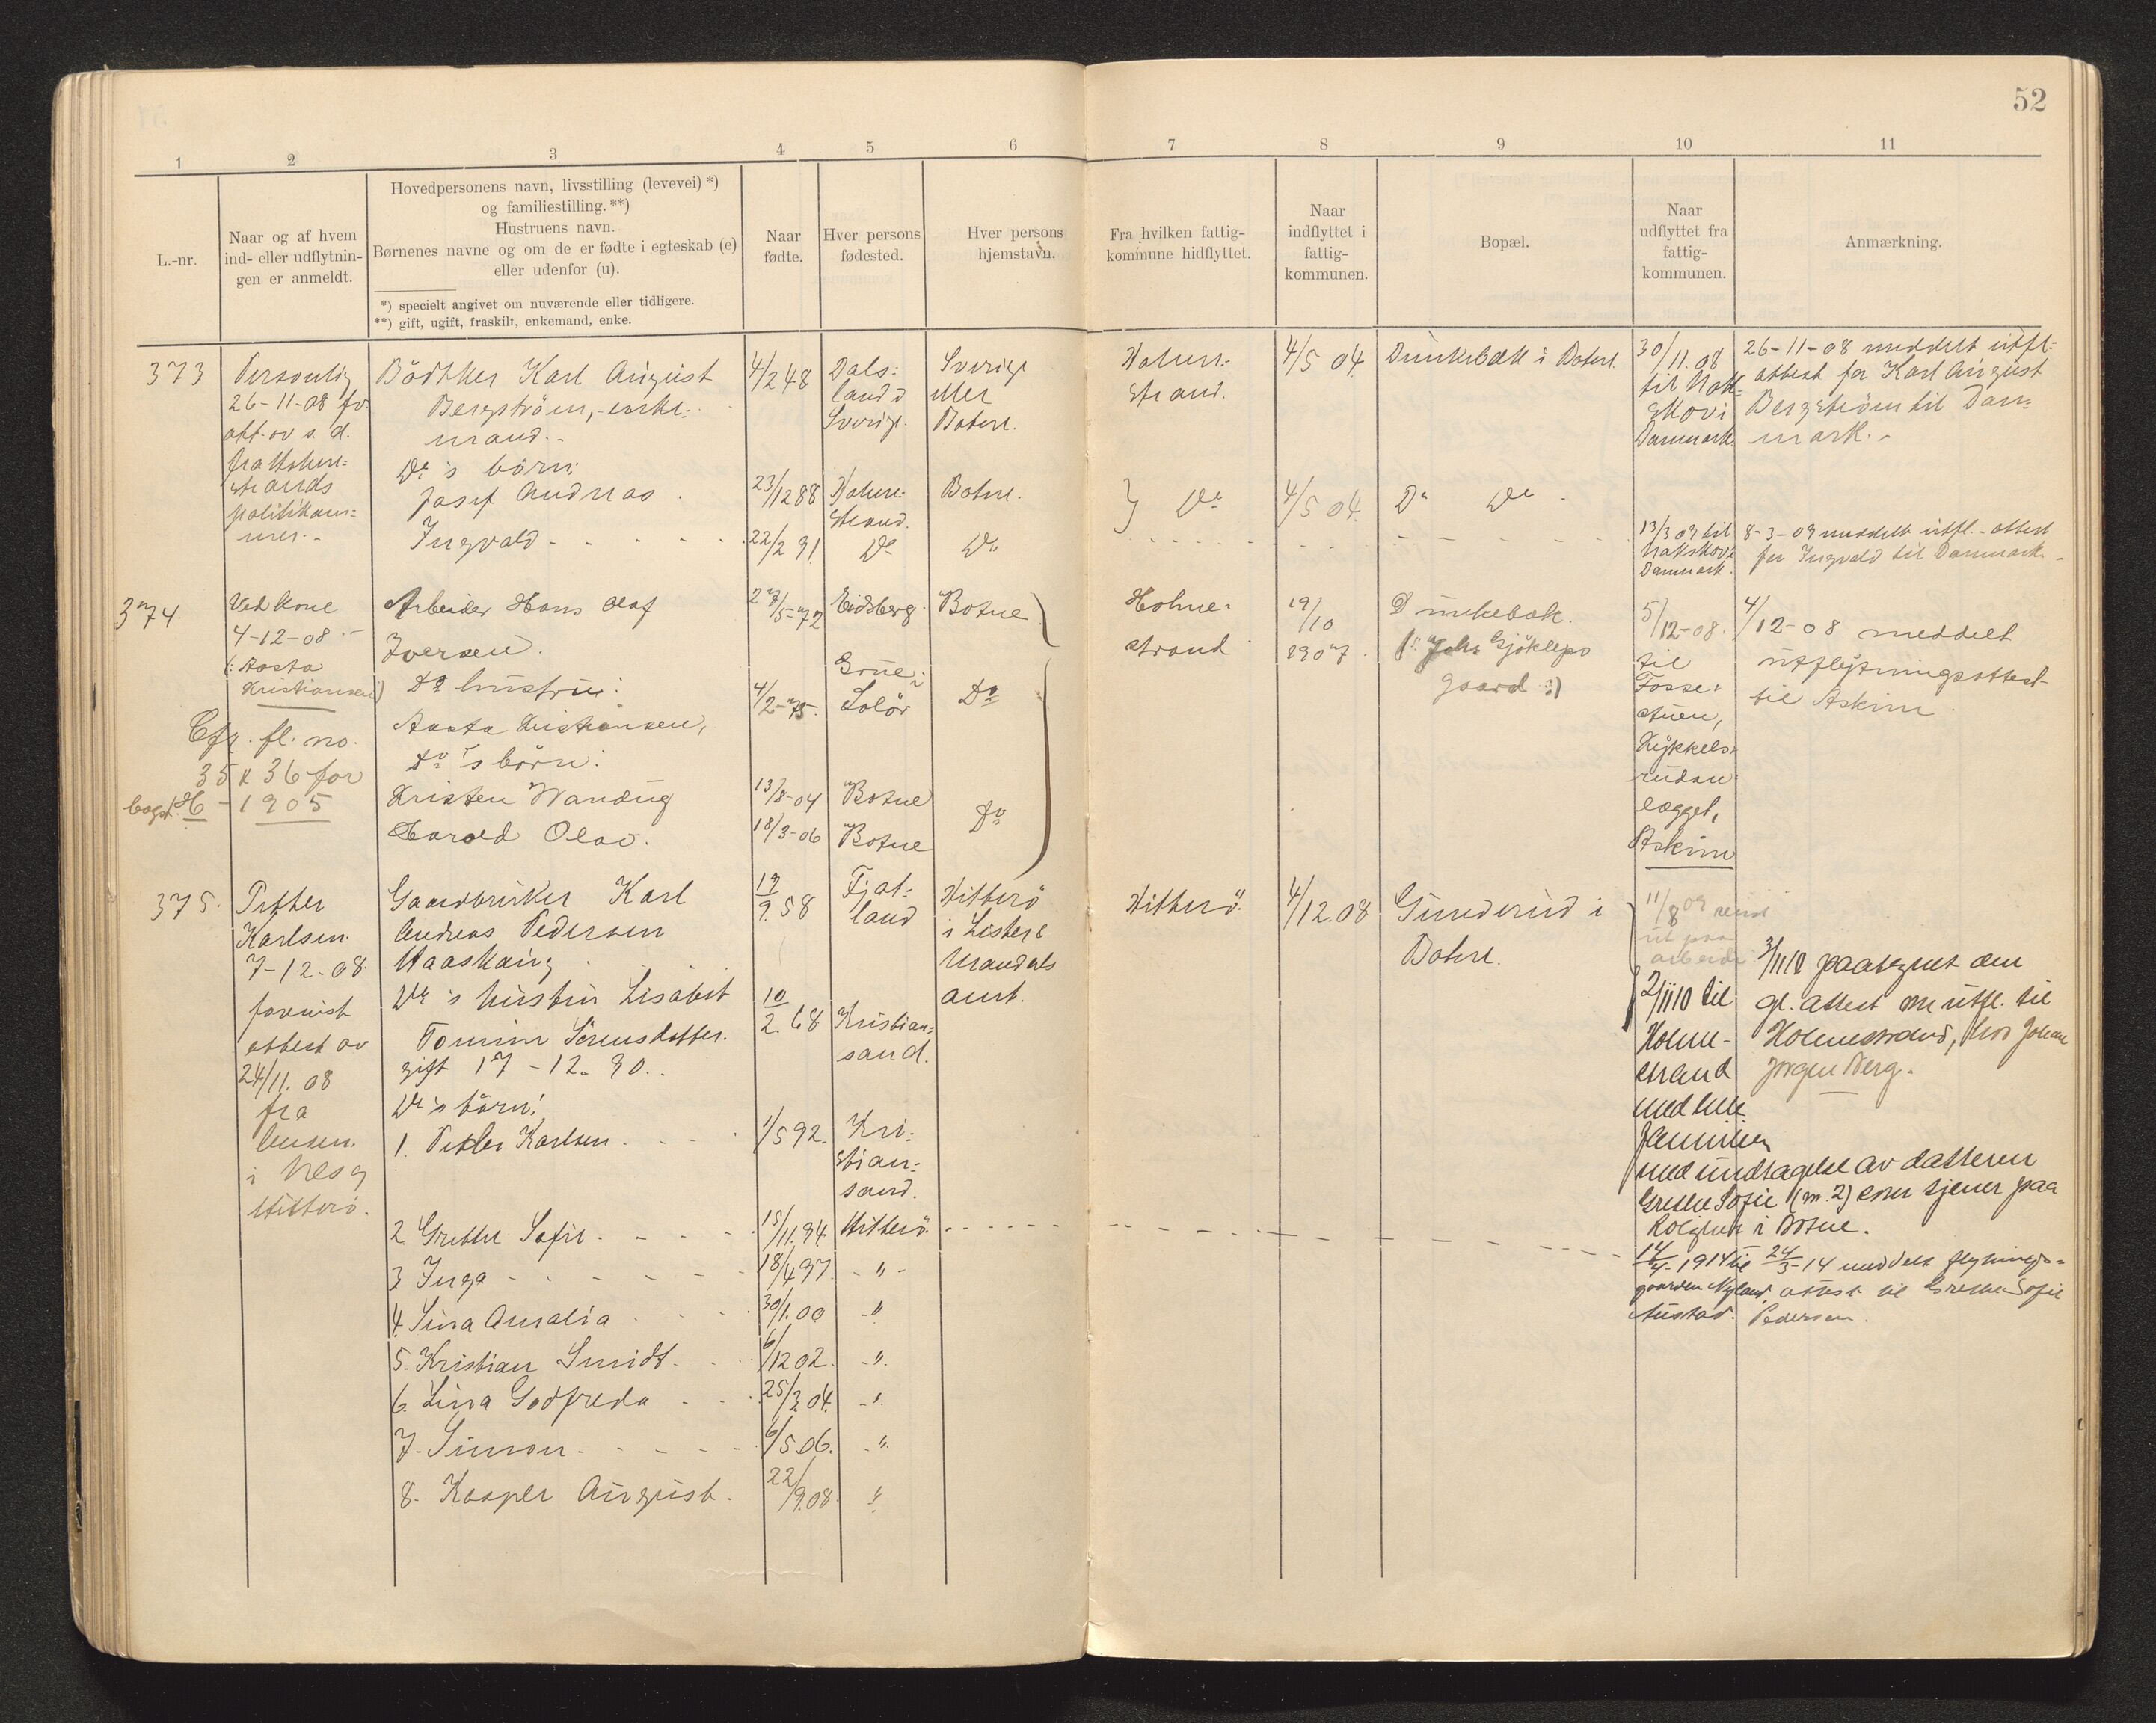 52
1
2
3
4
5
6
7
8
9
10
11
L.-nr.
Naar og af hvem
ind- eller udflytnin-
gen er anmeldt.
Hovedpersonens navn, livsstilling (levevei) *)
og familiestilling. **)
Hustruens navn.
Børnenes navne og om de er fødte i egteskab (e)
eller udenfor (u).
*) specielt angivet om nuværende eller tidligere.
**) gift, ugift, fraskilt, enkemand, enke.
Naar
fødte.
Hver persons
fødested.
Hver persons
hjemstavn.
Fra hvilken fattig-
kommune hidflyttet.
Naar
indflyttet i
fattig-
kommunen.
Bopæl.
Naar
udflyttet fra
fattig-
kommunen.
Anmærkning.
373
Personlig
26-11-08 fr
att. av s. d.
fra Holme=
strands
politikam=
mer.-
Bödtker Karl August
Bergström, - enke=
mand.-
Do's börn:
Josef Andreas
Ingvald
4/2 48
23/12 88
22/2 91
Dals=
land i
Sverige.
Holme=
strand.
Do
Sverige
eller
Botne.
Botne.
Do
Holme=
strand.
} Do
4/5 04.
4/5 04.
Dunkebæk i Botne.
Do Do
30/11.08
til Nak=
skov i
Danmark
13/3 09 til
Nakskov i
Danmark.
26-11-08 meddelt utfl=
attest for Karl August
Bergström til Dan=
mark.-
8-3-09 meddelt utfl.-attest
for Ingvald til Danmark.-
374
Ved kone
4-12-08.-
(: Aasta
Kristiansen)
Cfr. fl. no.
35 & 36 for
bogst. H - 1905
Arbeider Hans Olaf
Iversen.
Do hustru:
Aasta Kristiansen,
Do's börn:
Kristen Wandug
Harald Olav.
27/5-72
4/2-75.
13/8-04
18/3-06
Eidsberg.
Grue i
Solör
Botne
Botne
Botne
Do
Do
Holme=
strand
19/10
1907.
Dunkebæk.
Gjöklep
gaard :)
5/12-08.
til
Fosse=
stuen,
Kykkels=
rudan=
lægget,
Askim
4/12-08 meddelt
utflytningsattest
til Askim
375.
Petter
Karlsen.
7-12-08.
forevist
attest av
24/11.08
fra
lensm.
i Nes og
Hitterö.
Gaardbruker Karl
Andreas Pedersen
Haaskaug
Do's hustru Lisabet
Tomine Sörensdatter.
gift 17-12-90.
Do's börn:
1. Petter Karlsen
2. Grethe Sofie
3. Inga
4. Sina Amalia
5. Kristian Smidt.
6. Lina Godfreda
7. Simon
8. Kasper August.
17/9.58
10/2.68
1/5 92.
15/11.94
18/4 97.
30/1.00
6/12 02.
25/3 04.
6/5 06.
22/9.08.
Fjot=
land
Kristian=
sand.
Kri=
stian=
sand.
Hitterö
-"-
"
-".
-".
-".
"
Hitterö
i Lister &
Mandals
amt.
Hitterö.
4/12.08
Gunderud i
Botne.
11/8 09 reist
ut paa
arbeide
2/11 10 til
Holme-
strand
med hele
familien
med undtagelse av datteren
Grethe Sofie (nr. 2) som tjener paa
Rolighet i Botne.
14/4-1914 til
gaarden Nyland,
3/11 10 paategnet den
gl. attest om utfl. til
Holmestrand, hos Johan
Jörgen Berg.
24/3-14 meddelt flytnings-
attest til Grethe Sofie
Pedersen.